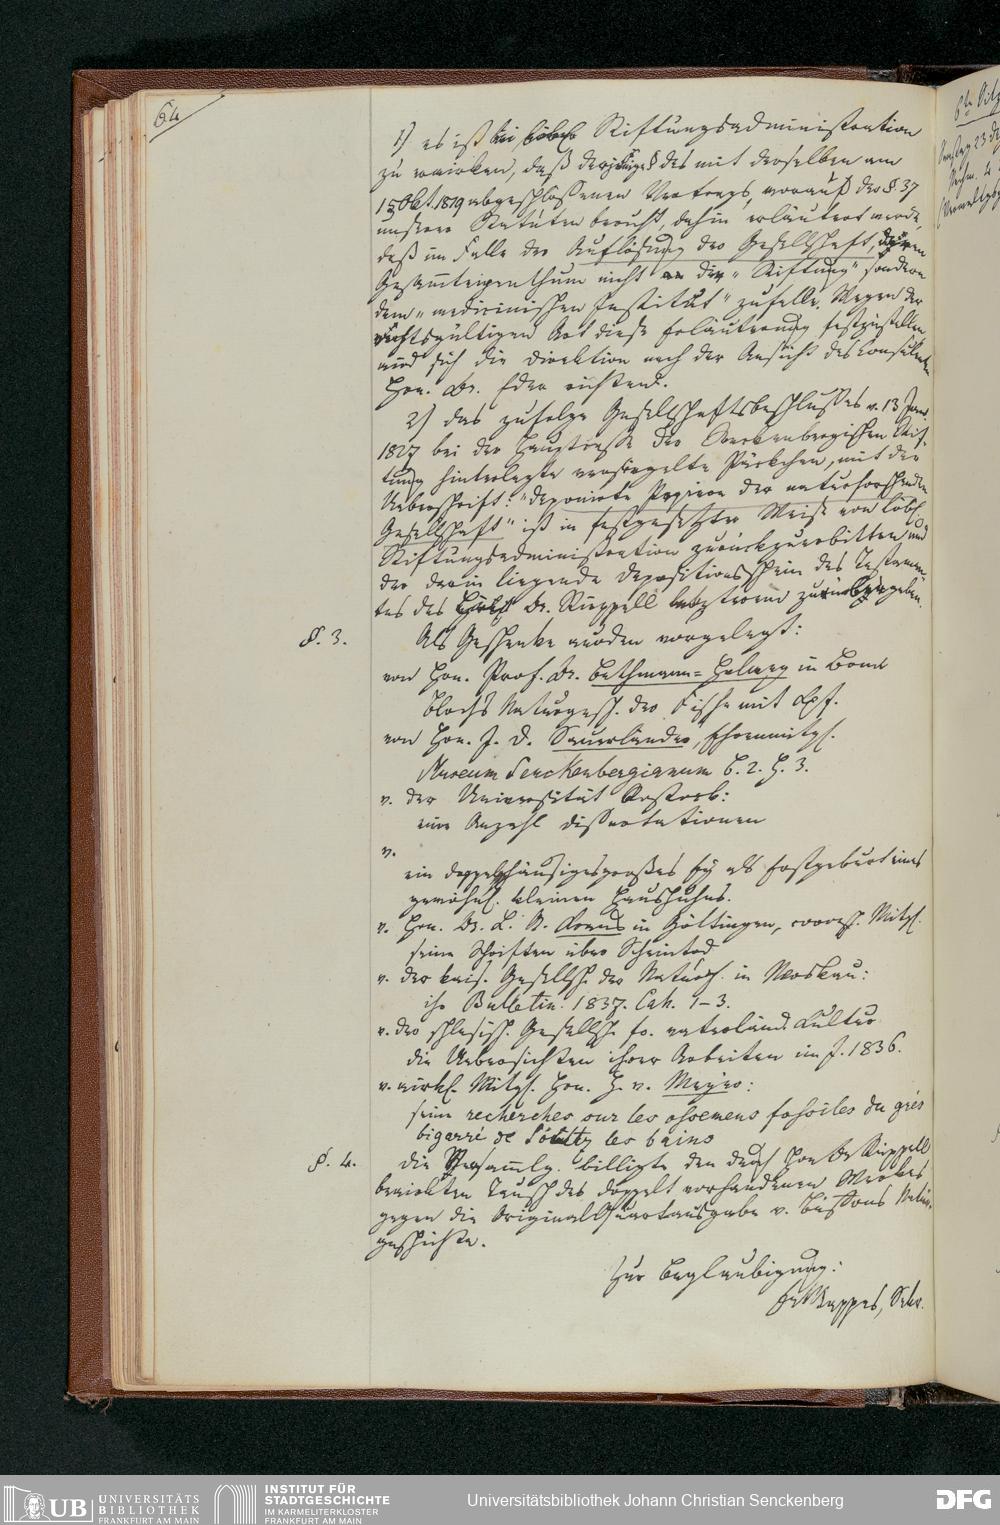 64
1) es ist bei löbl. Stiftungsadministration
zu erwirken, daß derjenige § des mit derselben am
15 Okt 1819 abgeschloßenen Vertrags, worauf der § 37
unsrer Statuten beruht, dahin erläutert werde,
daß im Falle der Auflösung der Gesellschaft, deren
Gesamteigenthum nicht an die „Stiftung" sondern
dem „medicinischen Institut" zufalle. Wegen der
rechtsgültigen Art diese Erläuterung festzustellen,
wird sich die Direktion nach der Ansicht des Consulenten
Hrn. Dr. Eder richten.
2) das zufolge Gesellschaftsbeschlußes v. 13 Jan.
1827 bei der Hauptkasse der Senckenbergischen Stif-
tung hinterlegte versiegelte Päckchen, mit der
Ueberschrift: "deponirte Papiere der naturforschenden
Gesellschaft" ist in festgesetzter Weise von löbl.
Stiftungsadministration zurückzuerbitten und
der darin liegende Depositionsschein des Testamen-
tes des Dr. Rüppell zurückzugeben.
§. 3. Als Geschenke wurden vorgelegt:
von Hrn. Prof. Dr. Bethmann-Hollweg in Bonn
Bloch's Naturgesch. der Fische mit Kpf.
von Hrn. J. D. Sauerländer, Ehrenmitgl.
Museum Senckenbergianum B. 2. H. 3.
v. der Universität
eine Anzahl Dissertationen
v.
ein Ei als Erstgeburt eines
gewöhnl. kleinen Haushuhns.
v. Hrn. Dr. L. A. Kraus in Göttingen, corresp. Mitgl.
seine Schriften über Scheintod
v. der kais. Gesellsch. der Naturf. in Moskau:
ihr Bulletin. 1837. Cah. 1–3.
v. der schlesisch. Gesellsch. fr. vaterländ. Kultur
die Uebersichten ihrer Arbeiten im J. 1836.
v. wirkl. Mitgl. Hrn. H. v. Meyer:
seine recherches sur les ossemens fossiles du grès
bigarré de Soultz les bains
§. 4. Die Versammlg. billigte den durch Hrn Dr Rüppell
bewirkten Tausch des doppelt vorhandenen Werkes
gegen die Original Quartausgabe v. Büffons Natur-
geschichte.
Zur Beglaubigung:
Dr Mappes, Sekr.
UB UNIVERSITÄTS
BIBLIOTHEK
FRANKFURT AM MAIN
INSTITUT FÜR
STADTGESCHICHTE
IM KARMELITERKLOSTER
FRANKFURT AM MAIN
Universitätsbibliothek Johann Christian Senckenberg
DFG